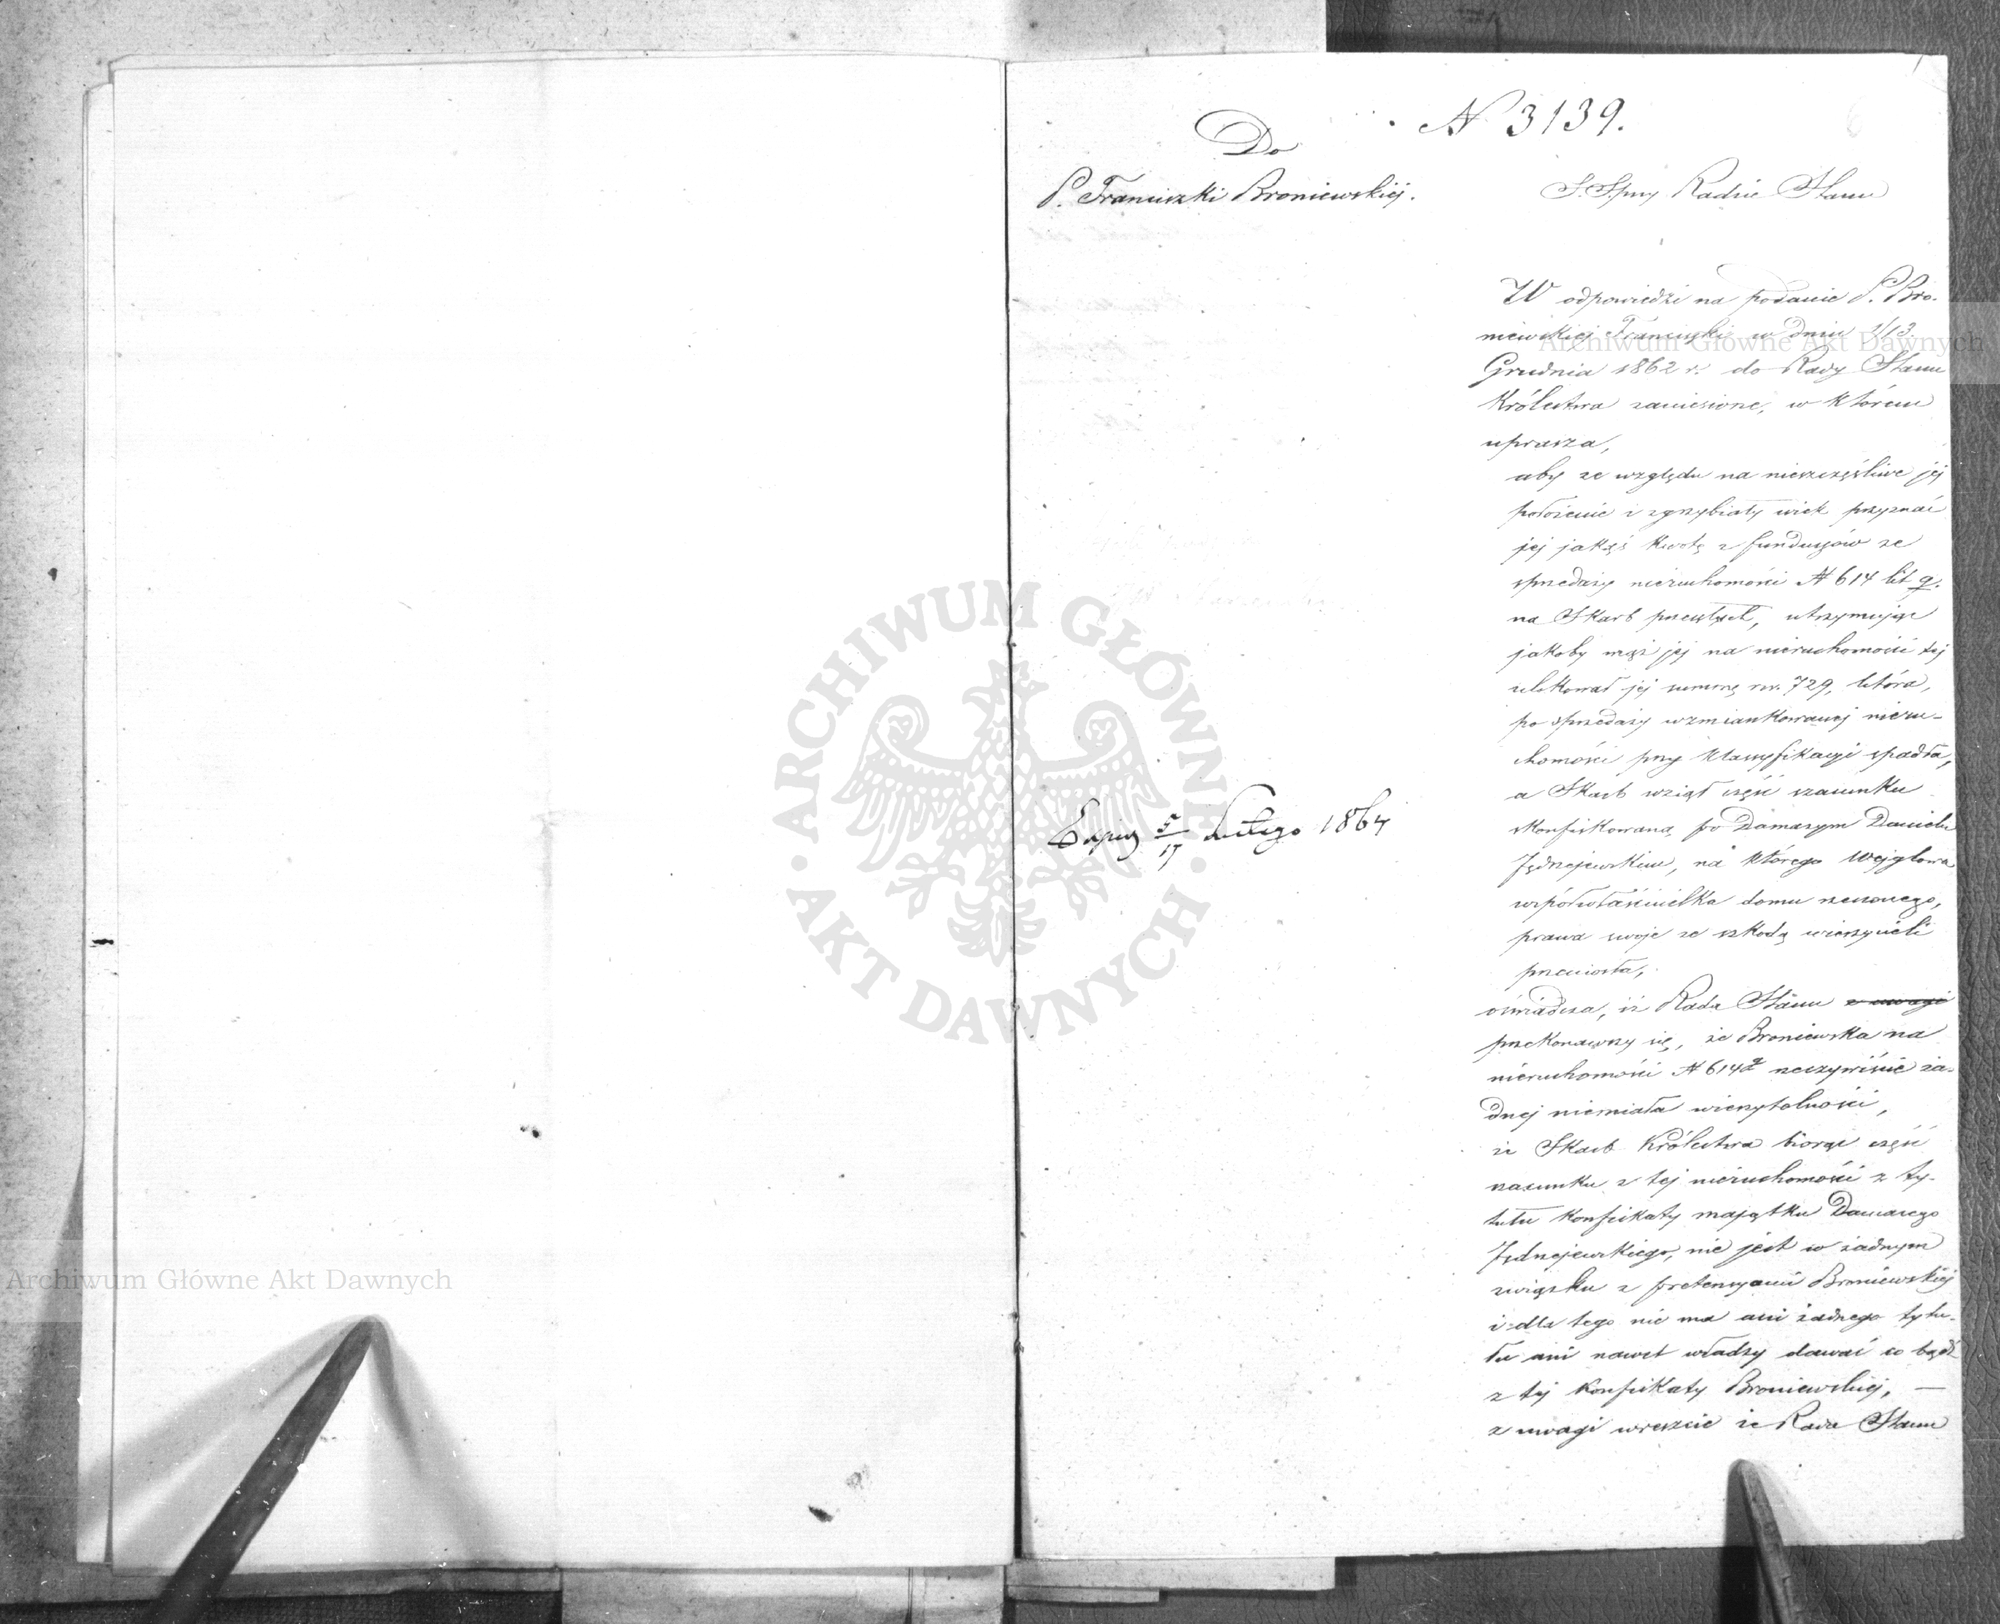 N 3139.
Do
P. Franciszki Broniewskiéj.
Radzie Stanu
W odpowiedzi na podanie P. Bro-
niewskiej Franciszki w dniu 1/13
Grudnia 1862 r. do Rady Stanu
Królestwa zaniesione, w którem
uprasza,
aby ze względu na nieszczęśliwe jej
położenie i zgrzybiały wiek przyznać
jej jakąś kwotę z funduszów ze
sprzedaży nieruchomości N 614 lit q.
na Skarb przeszłych, utrzymując
jakoby mąż jej na nieruchomości tej
ulokował jej summę rsr. 729, która,
po sprzedaży wzmiankowanej nieru-
chomości przy klassyfikacyi spadła,
a Skarb wziął część szacunku
skonfiskowaną po Damazym Danielu
Jędrzejewskim, na którego Wejglowa
współwłaścicielka domu rzeczonego,
prawa swoje ze szkodą wierzycieli
przeniosła,
oświadcza, iż Rada Stanu z uwagi
przekonawszy się, że Broniewska na
nieruchomości N 614 q rzeczywiście ża-
dnej niemiała wierzytelności,
że Skarb Królestwa biorąc część
szacunku z tej nieruchomości z ty-
tułu konfiskaty majątku Damazego
Jędrzejewskiego, nie jest w żadnym
związku z pretensyami Broniewskiej
i dla tego nie ma ani żadnego tytu-
łu ani nawet władzy dawać co bądź
z tej konfiskaty Broniewskiej, —
z uwagi wreszcie że Rada Stanu
5/17 Lutego 1864
ARCHIWUM GŁÓWNE AKT DAWNYCH
Archiwum Główne Akt Dawnych
Archiwum Główne Akt Dawnych